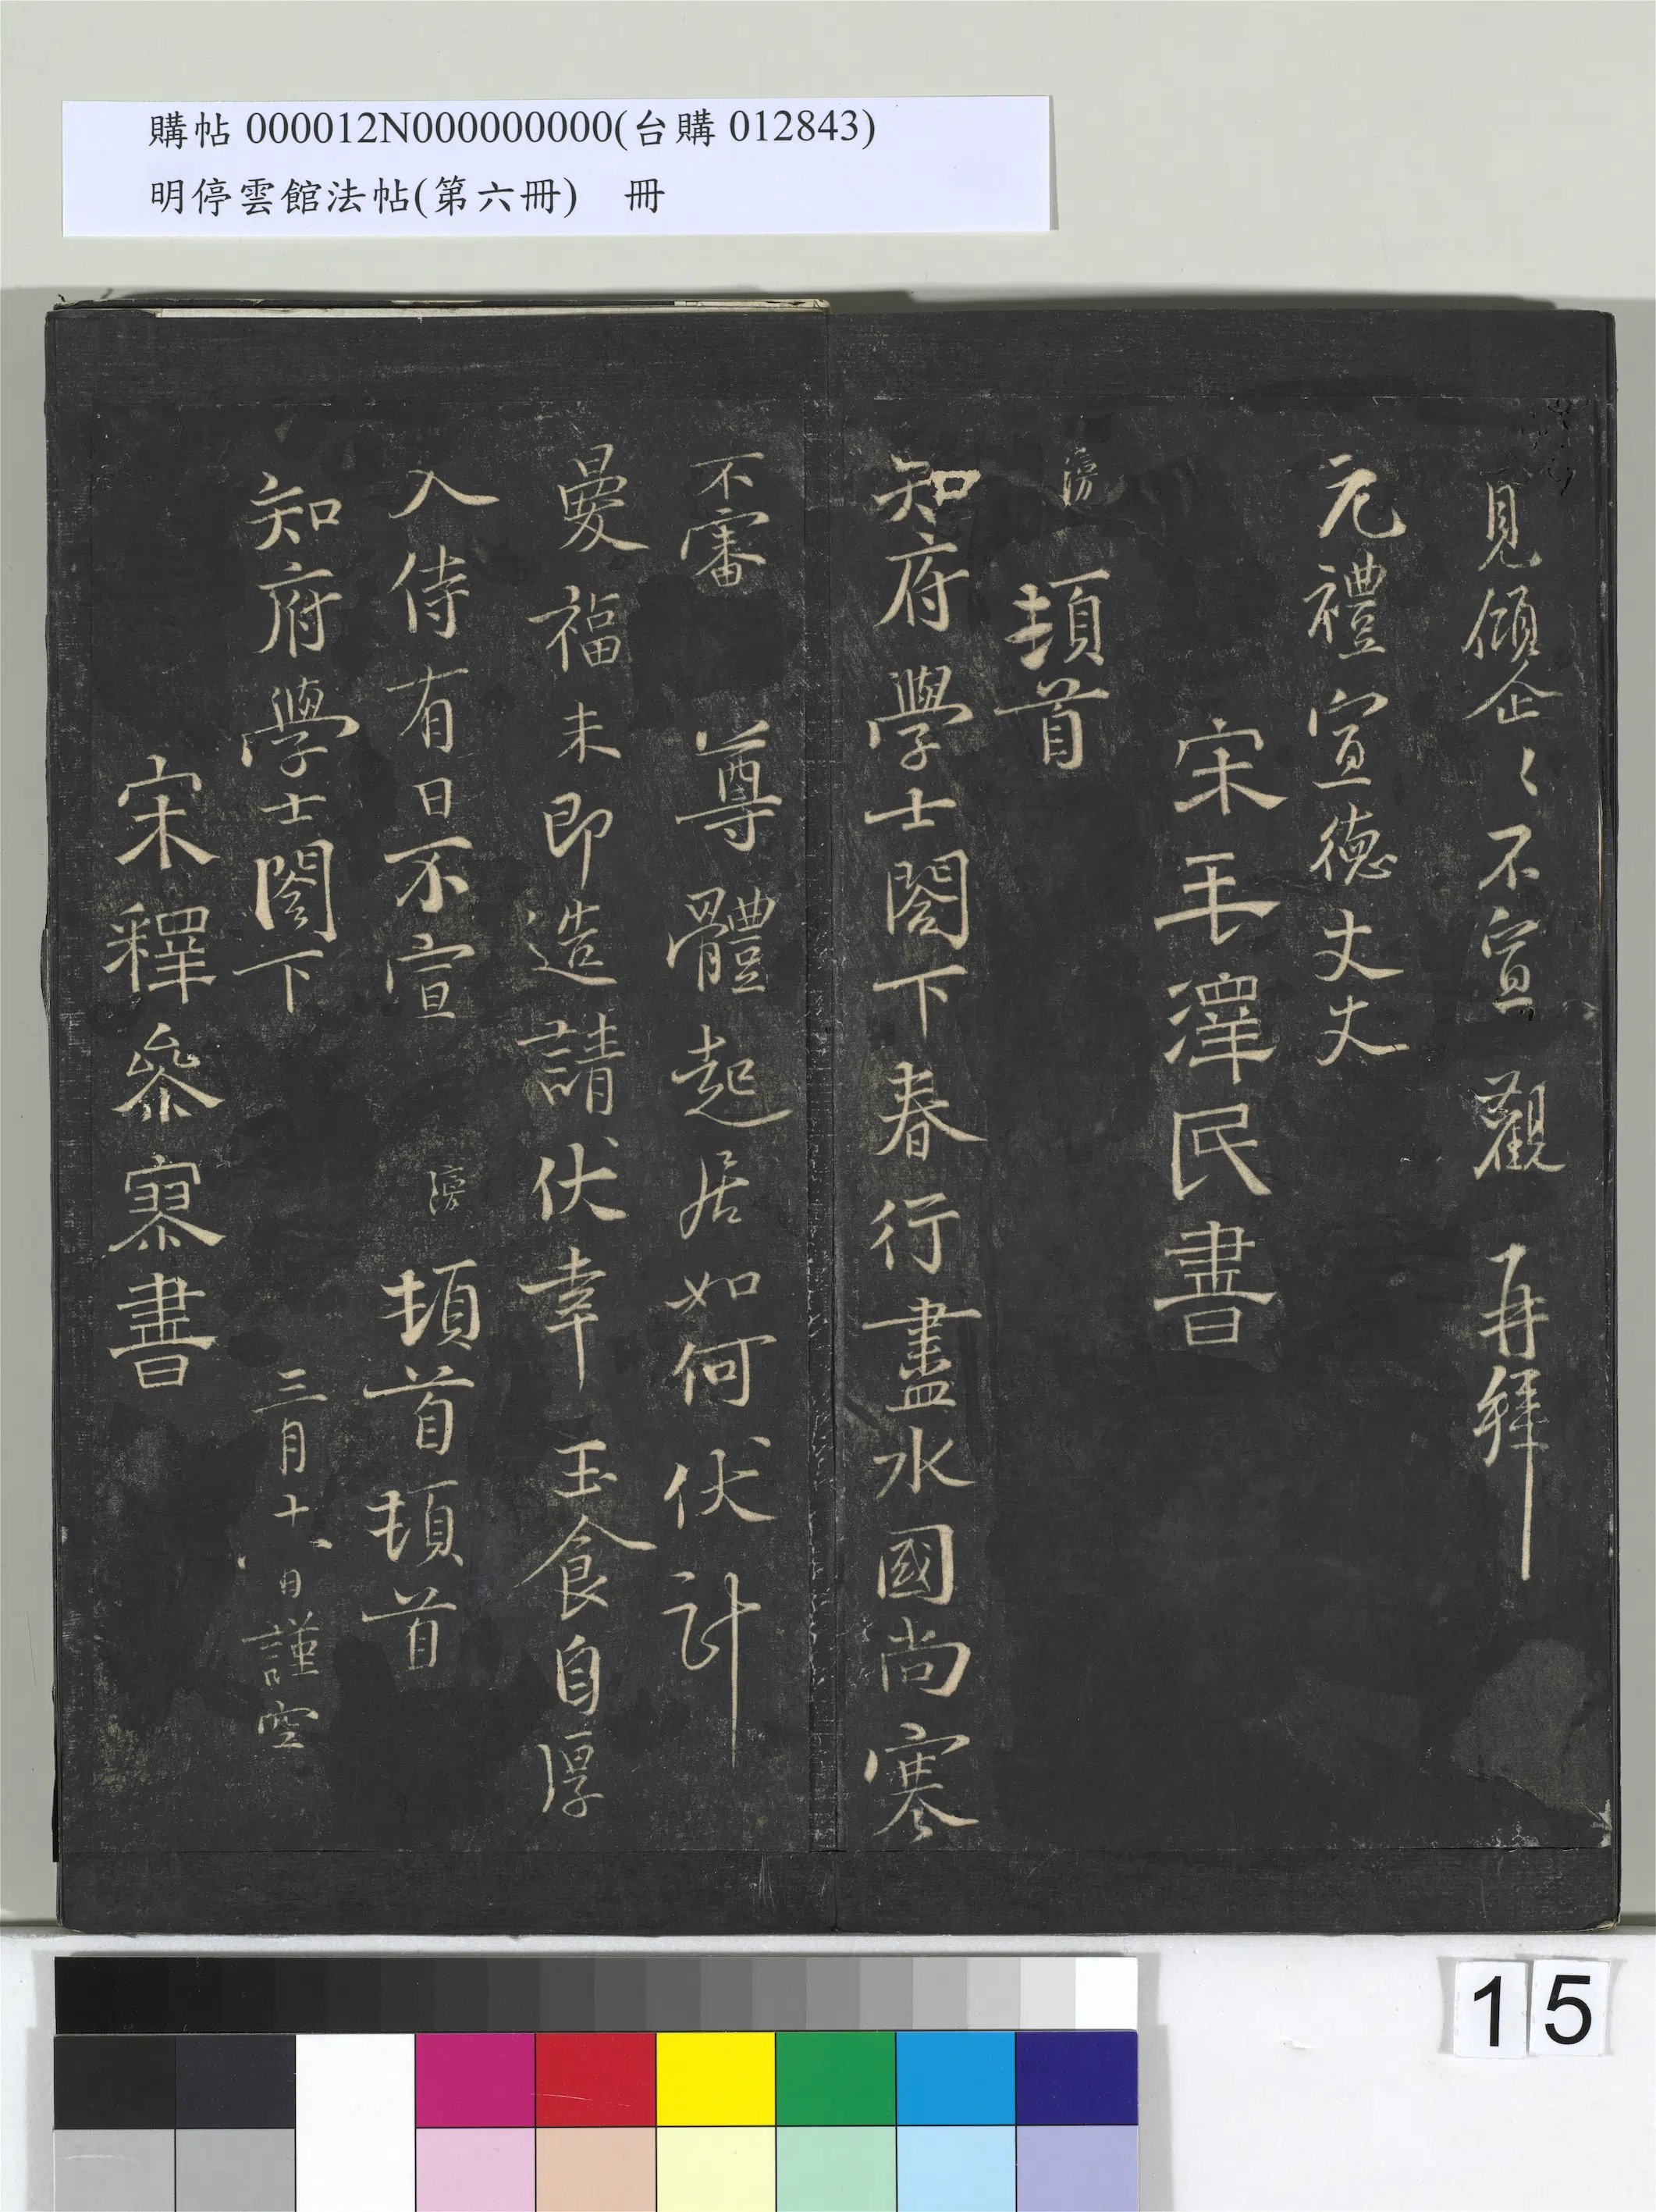 購帖 000012N000000000(台購 012843)
明停雲館法帖(第六冊) 冊
見傾企〻不宣 觀 再拜
元禮宣德丈丈
宋毛澤民書
頓首
知府學士閣下春行盡水國尚寒
不審 尊體起居如何伏計
晏福未即造請伏幸玉食自厚
入侍有日不宣 頓首頓首
知府學士閣下 三月十八日謹空
宋釋參寥書
15